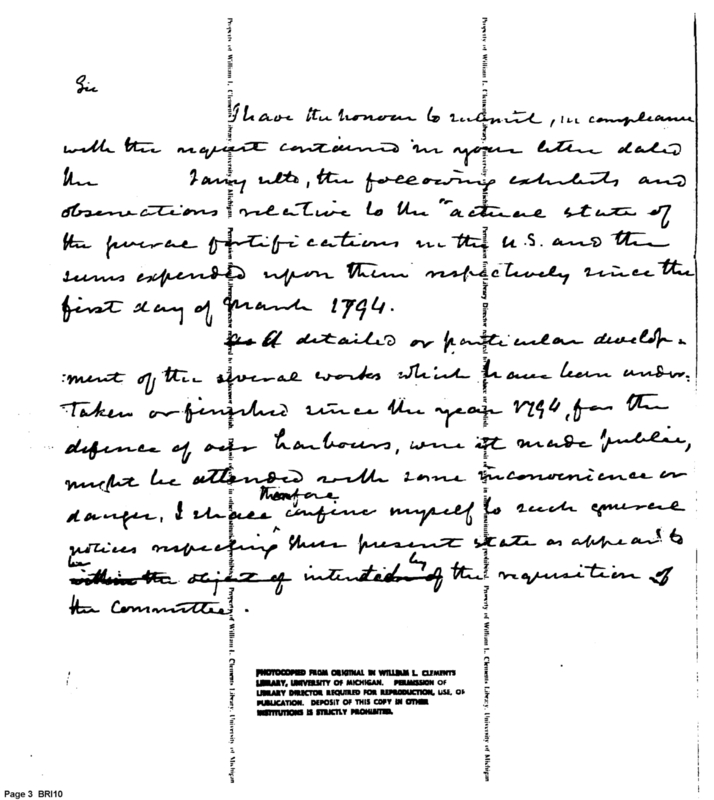 Sir
I have the honour to submit, in compliance
with the request contained in your letter dated
the Jany ulto, the following exhibits and
observations relative to the "actual state of
the several fortifications in the U.S. and the
sums expended upon them respectively since the
first day of March 1794.
A detailed or particular develop-
ment of the several works which have been under-
taken or finished since the year 1794, for the
defence of our harbours, were it made public,
might be attended with some inconvenience or
danger, I shall therefore confine myself to such general
notices respecting their present state as appear to
be within the object of intended by of the requisition of
the Committee.
PHOTOCOPIED FROM ORIGINAL IN WILLIAM L. CLEMENTS
LIBRARY, UNIVERSITY OF MICHIGAN. PERMISSION OF
LIBRARY DIRECTOR REQUIRED FOR REPRODUCTION, USE, OR
PUBLICATION. DEPOSIT OF THIS COPY IN OTHER
INSTITUTIONS IS STRICTLY PROHIBITED.
Property of William L. Clements Library, University of Michigan
Page 3 BRI10